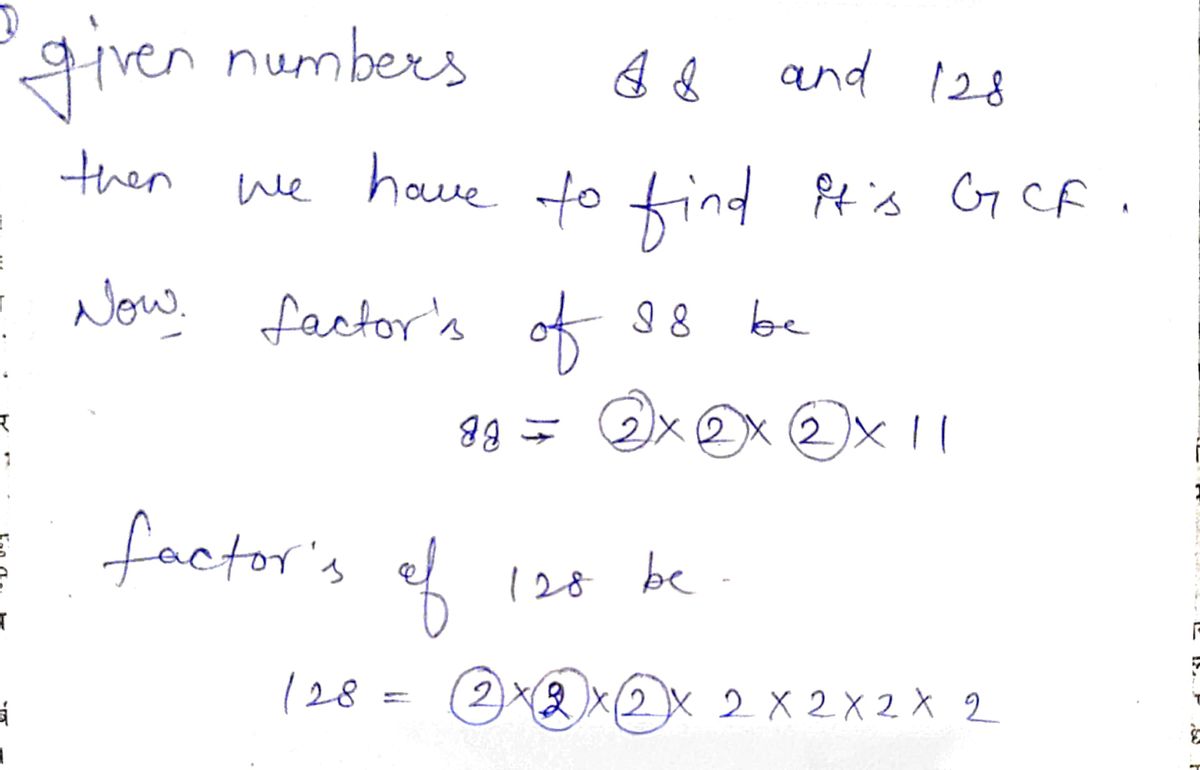 given numbers 88 and 128
then we have to find it's GCF.
Now. factor's of 88 be
88 = 2 x 2 x 2 x 11
factor's of 128 be -
128 = 2 x 2 x 2 x 2 x 2 x 2 x 2